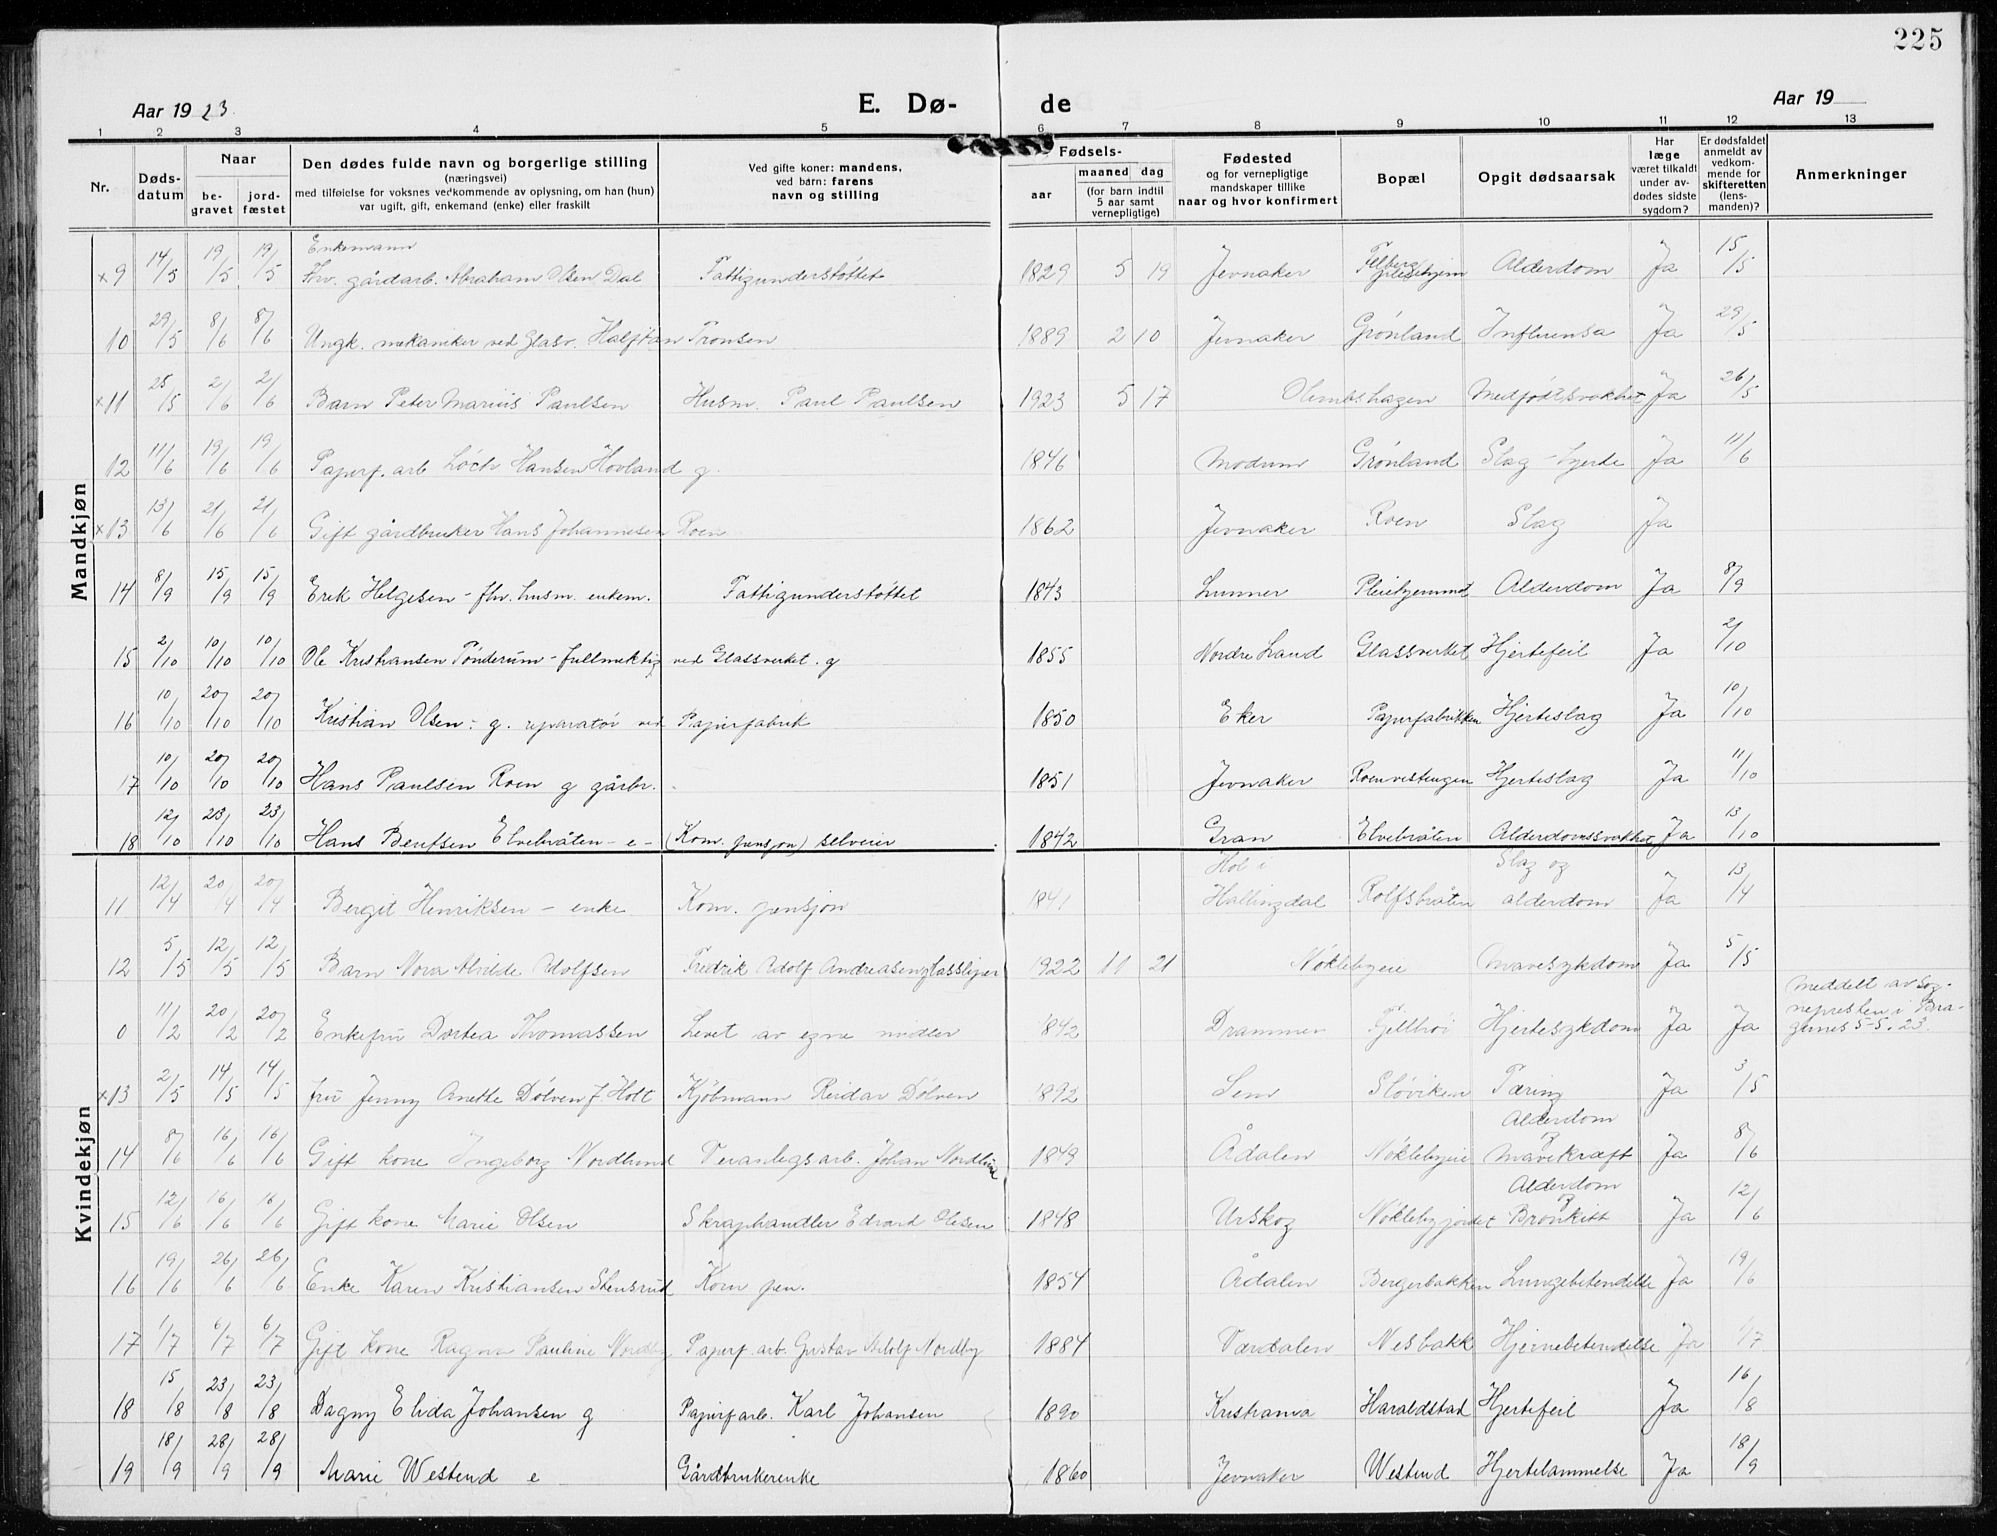 225
Aar 1923 E. Dø- de Aar 19
1 2 3 4 5 6 7 8 9 10 11 12 13
Nr. Dødsdatum Naar begravet jordfæstet
Den dødes fulde navn og borgerlige stilling (næringsvei) med tilføielse for voksnes vedkommende av oplysning, om han (hun) var ugift, gift, enkemand (enke) eller fraskilt
Ved gifte koner: mandens, ved barn: farens navn og stilling
Fødsels- aar maaned dag (for barn indtil 5 aar samt vernepligtige)
Fødested og for vernepligtige mandskaper tillike naar og hvor konfirmert
Bopæl
Opgit dødsaarsak
Har læge været tilkaldt under avdødes sidste sygdom?
Er dødsfaldet anmeldt av vedkommende for skifteretten (lensmanden)?
Anmerkninger
Mandkjøn
x 9 14/5 19/5 19/5 Enkemann Fhv. gårdarb. Abraham Olsen Dal Fattigunderstøttet 1829 5 19 Jevnaker pleiehjem Alderdom Ja 15/5
10 29/5 8/6 8/6 Ungk. mekaniker ved Glasv. Halfdan Tronsen 1889 2 10 Jevnaker Grønland Influensa Ja 29/5
x 11 25/5 2/6 2/6 Barn Peter Marius Paulsen Husm. Paul Paulsen 1923 5 17 Olimbshagen Medfødt svakhet Ja 26/5
12 11/6 19/6 19/6 Papirf. arb Hansen Hovland g. 1846 Modum Grønland Slag - hjerte Ja 11/6
x 13 13/6 21/6 21/6 Gift gårdbruker Hans Johannesen Roen 1862 Jevnaker Roen Slag Ja
14 8/9 15/9 15/9 Erik Helgesen - fhv. husm. enkem. Fattigunderstøttet 1843 Lunner Pleiehjemmet Alderdom Ja 8/9
15 2/10 10/10 10/10 Ole Kristiansen Tønderum - fullmektig ved Glassverket. g 1855 Nordre Land Glassverket Hjertefeil Ja 2/10
16 10/10 20/10 20/10 Kristian Olsen - g. reparatør ved Papirfabrik 1850 Eker Papirfabrikken Hjerteslag Ja 10/10
17 10/10 20/10 20/10 Hans Paulsen Roen g gårbr. 1851 Jevnaker Roenvestengen Hjerteslag Ja 11/10
18 12/10 23/10 23/10 Hans Bentsen Elvebråten - e - (Kom. pensjon) selveier 1842 Gran Elvebråten Alderdomssvakhet Ja 13/10
Kvindekjøn
11 12/4 20/4 20/4 Bergit Henriksen - enke Kom. pensjon 1841 Hol i Hallingdal Rolfsbråten Slag og alderdom Ja 13/4
12 5/5 12/5 12/5 Barn Nora Alvilde Adolfsen Fredrik Adolf Andreasen glassliper 1922 11 21 Nøklebyeie Mavesykdom Ja 5/5
0 11/2 20/2 20/2 Enkefru Dortea Thomassen Levet av egne midler 1842 Drammen Fjellhøi Hjertesykdom Ja Ja Meddelt av sognepresten i Bragernes 5-5.23.
x 13 2/5 14/5 14/5 fru Jenny Anette Dølven f. Holt Kjøbmann Reidar Dølven 1892 Sem Sløviken Tæring Ja 3/5
14 8/6 16/6 16/6 Gift kone Ingeborg Nordlund Veianlegsarb. Johan Nordlund 1849 Ådalen Nøklebyeie Alderdom og Mavekræft Ja 8/6
15 12/6 16/6 16/6 Gift kone Marie Olsen Skraphandler Edvard Olsen 1848 Urskog Nøklebyjordet Alderdom og Bronkitt Ja 12/6
16 19/6 26/6 26/6 Enke Karen Kristiansen Stensrud Kom pen. 1854 Ådalen Bergerbakken Lungebetendelse Ja 19/6
17 1/7 6/7 6/7 Gift kone Ragna Pauline Nordby Papirf. arb. Gustav Adolf Nordby 1884 Værdalen Nesbakk Hjernebetendelse Ja 1/7
18 15/8 23/8 23/8 Dagny Elida Johansen g Papirfarb. Karl Johansen 1890 Kristiania Haraldstad Hjertefeil Ja 16/8
19 18/9 28/9 28/9 Marie Westend e Gårdbrukerenke 1860 Jevnaker Westend Hjertelammelse Ja 18/9